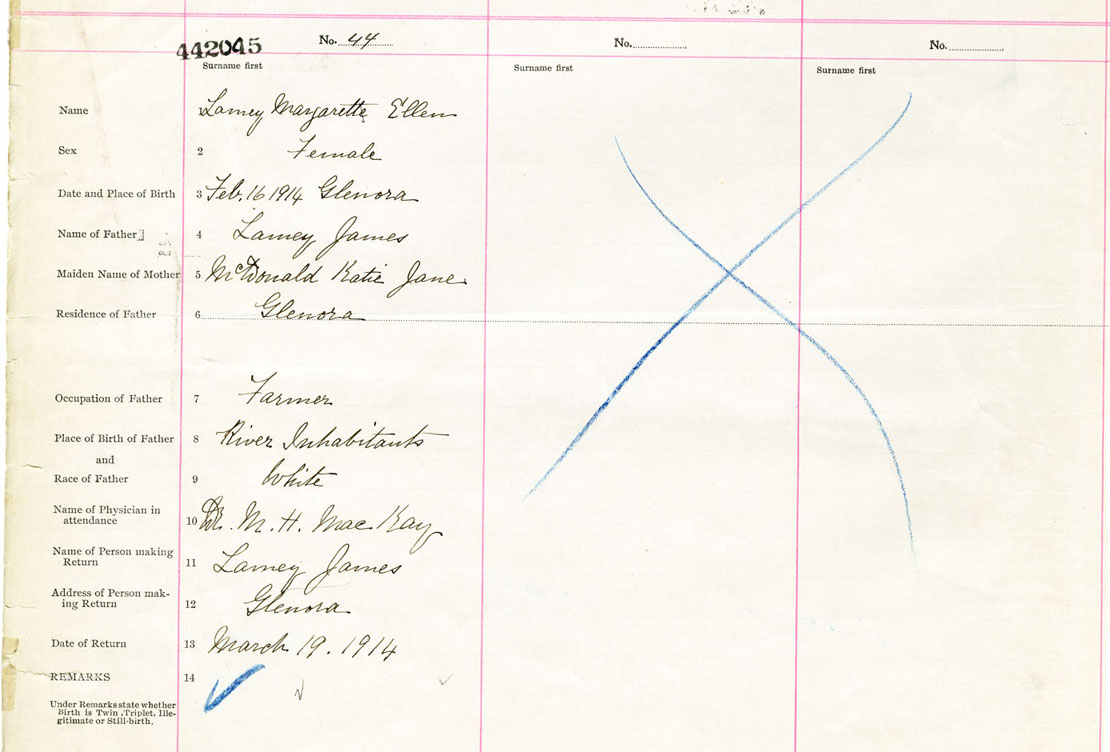 442045 No. 44 No. No.
Surname first Surname first Surname first
Name 1 Lamey Margarette Ellen
Sex 2 Female
Date and Place of Birth 3 Feb. 16 1914 Glenora
Name of Father 4 Lamey James
Maiden Name of Mother 5 McDonald Katie Jane
Residence of Father 6 Glenora
Occupation of Father 7 Farmer
Place of Birth of Father 8 River Inhabitants
and
Race of Father 9 White
Name of Physician in
attendance 10 Dr. M. H. MacKay
Name of Person making
Return 11 Lamey James
Address of Person mak-
ing Return 12 Glenora
Date of Return 13 March 19. 1914
REMARKS 14
Under Remarks state whether
Birth is Twin, Triplet, Ille-
gitimate or Still-birth.